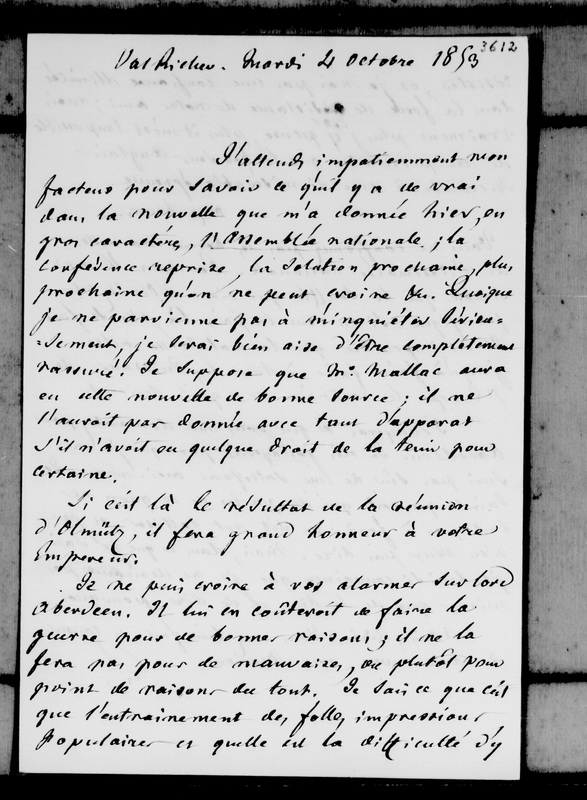 3612
Val Richer. Mardi 4 octobre 1853
J'attends impatiemment mon
facteur pour savoir ce qu'il y a de vrai
dans la nouvelle que m'a donnée hier, en
gros caractères, l'Assemblée nationale ; la
conférence reprise, la solution prochaine, plus
prochaine qu'on ne peut croire &c. Quoique
je ne parvienne pas à m'inquiéter sérieu=
=sement, je serai bien aise d'être complètement
rassuré. Je suppose que Mr. Mallac aura
eu cette nouvelle de bonne source ; il ne
l'auroit pas donnée avec tant d'apparat
s'il n'avoit eu quelque droit de la tenir pour
certaine.
Si c'est là le résultat de la réunion
d'Olmütz, il fera grand honneur à votre
Empereur.
Je ne puis croire à vos alarmes sur lord
Aberdeen. Il lui en coûteroit de faire la
guerre pour de bonnes raisons ; il ne la
fera pas pour de mauvaises, ou plutôt pour
point de raisons du tout. Je sais ce que c'est
que l'entrainement des folles impressions
populaires et quelle est la difficulté d'y